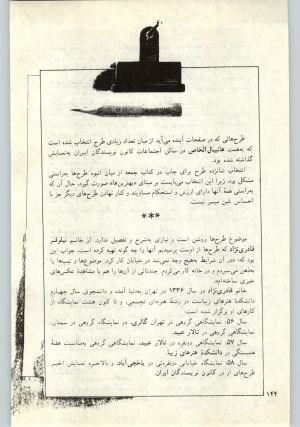 طرح‌هائی که در صفحات آینده می‌آید از میان تعداد زیادی طرح انتخاب شده است
که به‌همت هانیبال‌الخاص در سالن اجتماعات کانون نویسندگان ایران به‌نمایش
گذاشته شده بود.
انتخاب شانزده طرح برای چاپ در کتاب جمعه از میان انبوه طرح‌ها به‌راستی
مشکل بود، زیرا این انتخاب می‌بایست بر مبنای «بهترین‌ها» صورت گیرد، حال آن که
به‌راستی همهٔ آنها دارای ارزش و استحکام مساویند و کنار نهادن طرح‌های دیگر جز با
احساس غبن میسر نیست.
***
موضوع طرح‌ها روشن است و نیازی به‌شرح و تفصیل ندارد. از خانم نیلوفر
قادری‌نژاد که طرح‌ها از اوست پرسیدیم آنها را چه گونه تهیه کرده است، جواب این
بود که: «در آن شرایط به‌هیچ وجه نمی‌شد در خیابان کار کرد. موضوع‌ها و تیپ‌ها را
به‌ذهن می‌سپردم و در خانه کار می‌کردم. چندتائی از آن‌ها را هم با مشاهدهٔ عکس‌های
خبری ساخته‌ام».
خانم قادری‌نژاد در سال ۱۳۳۶ در تهران به‌دنیا آمده و دانشجوی سال چهارم
دانشکدهٔ هنرهای زیباست در رشتهٔ هنرهای تجسمی، و تا کنون هشت نمایشگاه از
کارهای او برگزار شده است:
سال ۵۶. نمایشگاهی گروهی در تهران گالری، دو نمایشگاه گروهی در سمنان،
نمایشگاهی گروهی در تالار عبید.
سال ۵۷. نمایشگاهی دونفره در تالار عبید، نمایشگاهی گروهی به‌مناسبت هفتهٔ
همبستگی در دانشکدهٔ هنرهای زیبا.
سال ۵۸. نمایشگاهی دونفره‌ئی در یاخچی‌آباد، و بالاخره نمایش اخیر
طرح‌های او در کانون نویسندگان ایران.
۱۴۴